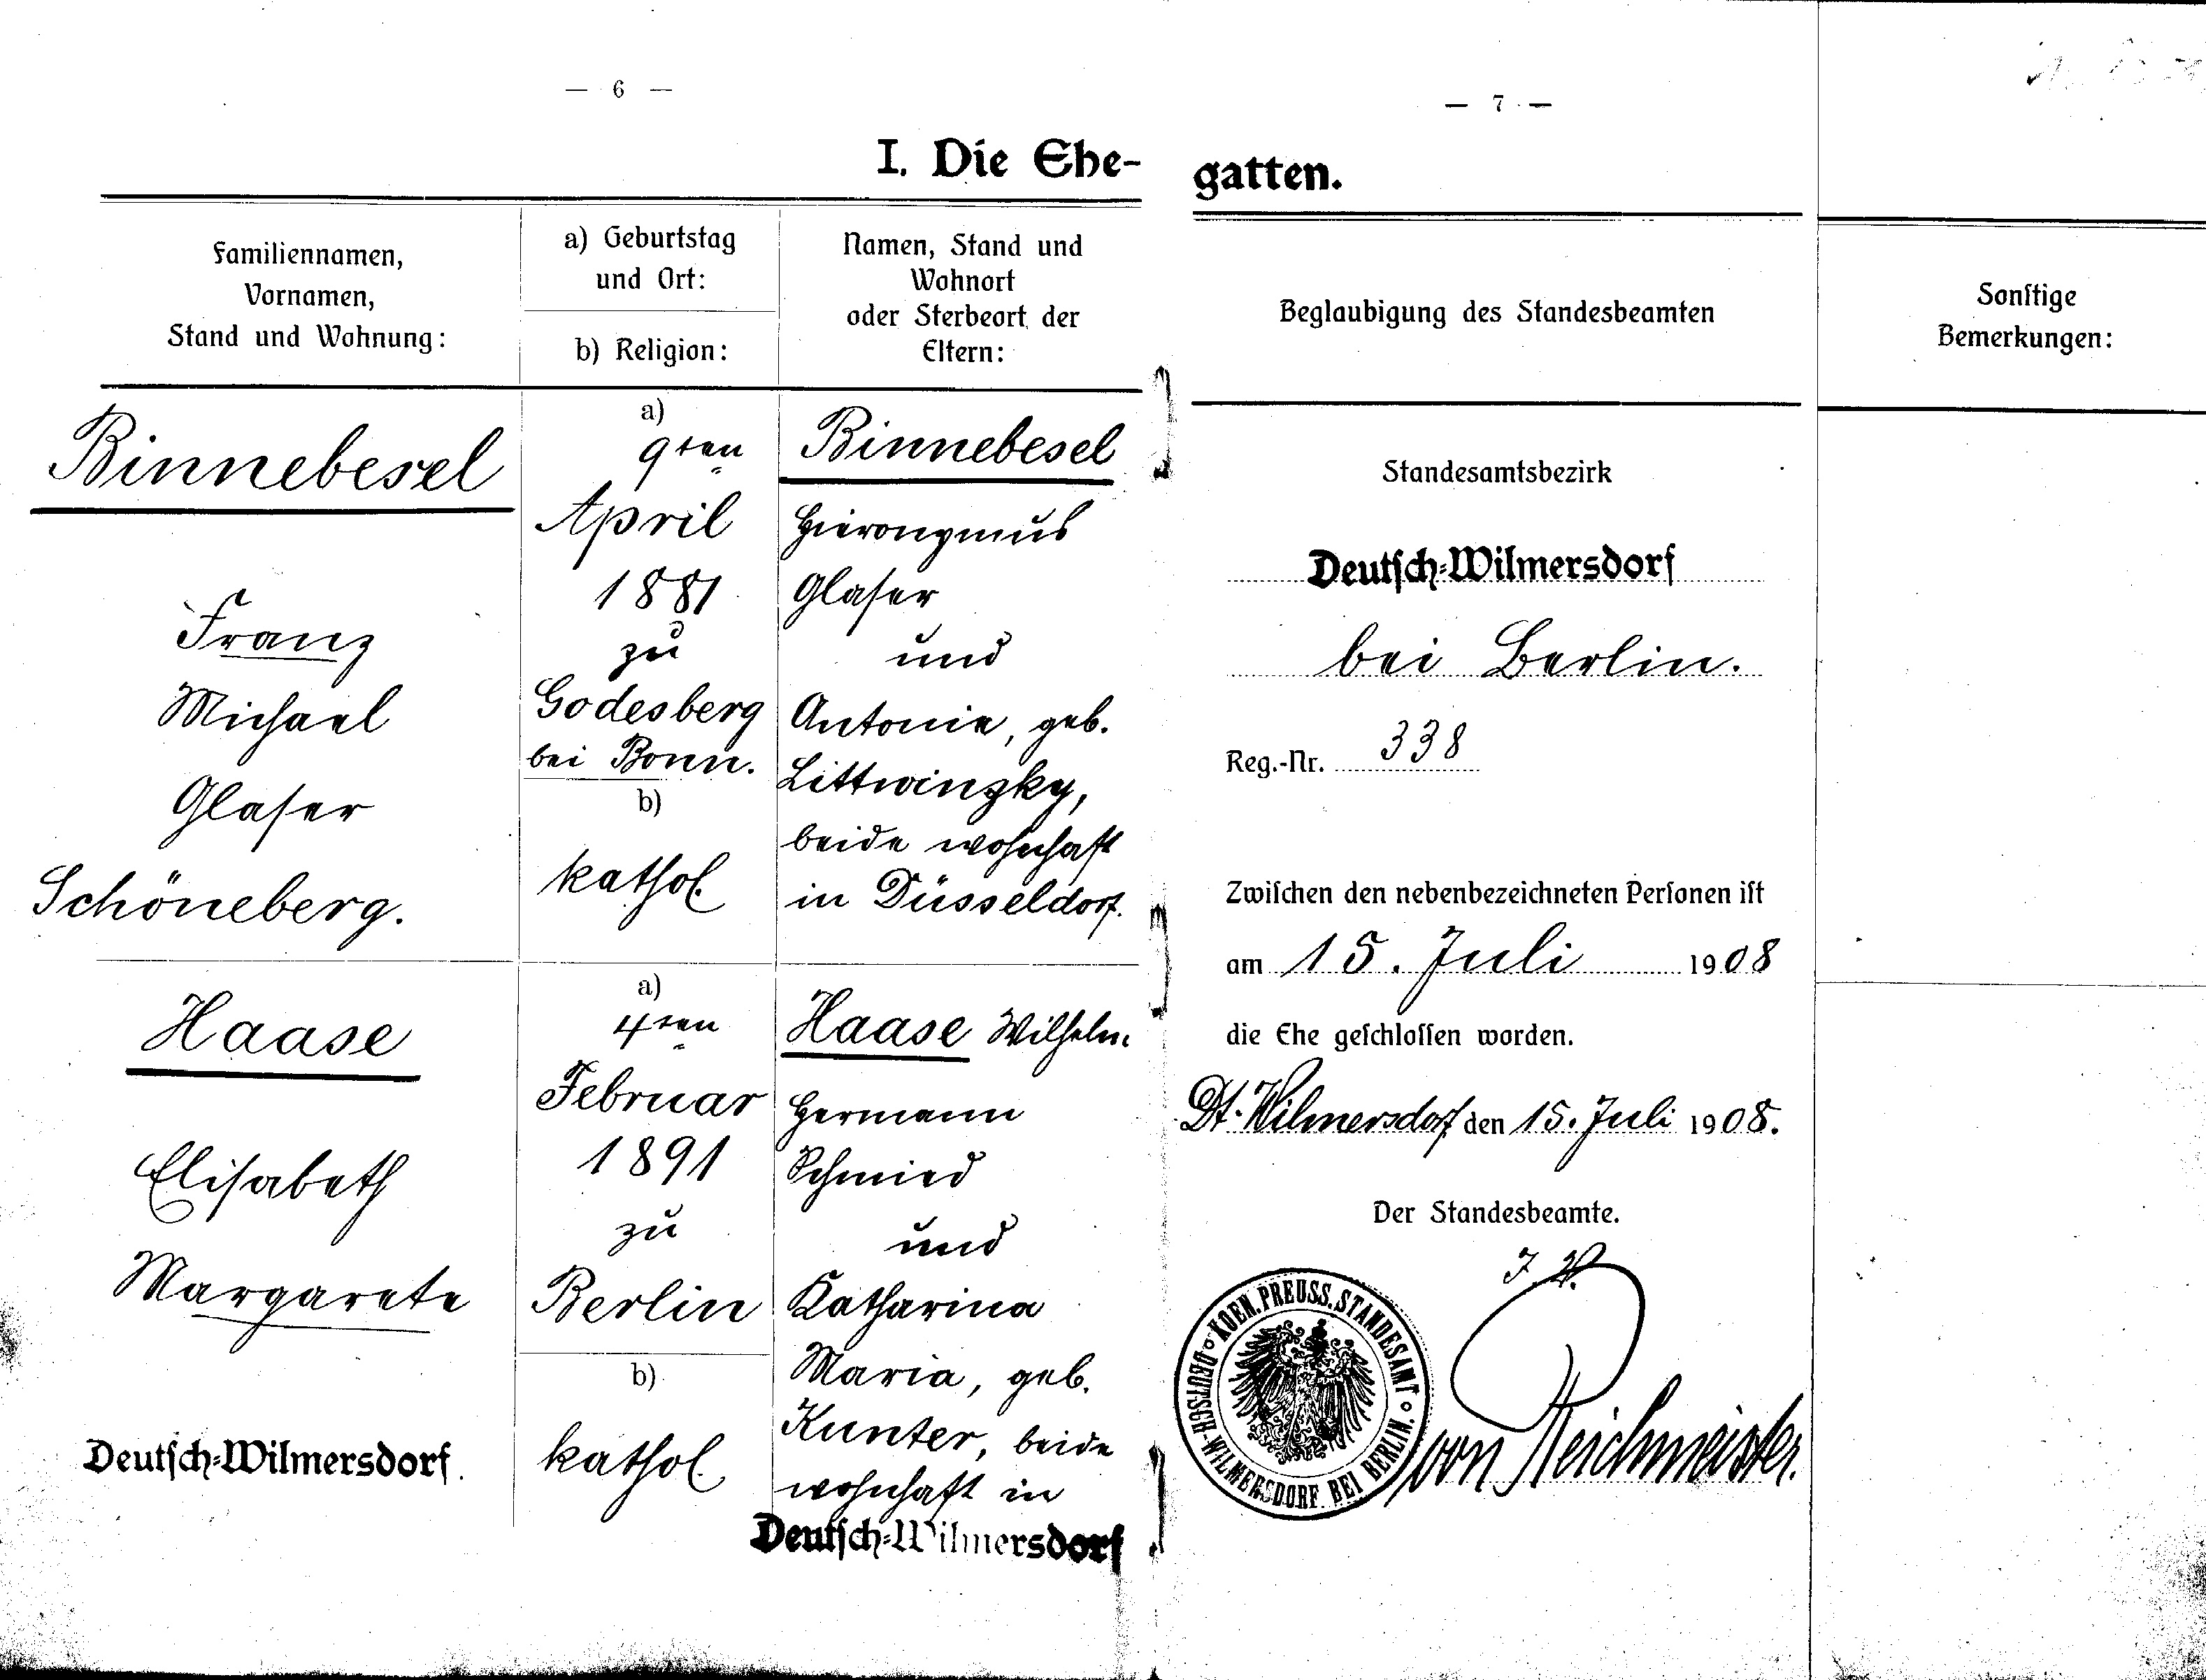 — 6 —
I. Die Ehe-
Familiennamen,
Vornamen,
Stand und Wohnung:
a) Geburtstag
und Ort:
b) Religion:
Namen, Stand und
Wohnort
oder Sterbeort der
Eltern:
Binnebesel
Franz
Michael
Glaser
Schöneberg.
a)
9ten
April
1881
zu
Godesberg
bei Bonn.
b)
kathol.
Binnebesel
Hieronymus
Glaser
und
Antonie, geb.
Littwinzky,
beide wohnhaft
in Düsseldorf.
Haase
Elisabeth
Margarete
Deutſch-Wilmersdorf.
a)
4ten
Februar
1891
zu
Berlin
b)
kathol.
Haase Wilhelm
Hermann
Schmied
und
Katharina
Maria, geb.
Kunter, beide
wohnhaft in
Deutſch-Wilmersdorf
— 7 —
gatten.
Beglaubigung des Standesbeamten
Standesamtsbezirk
Deutſch-Wilmersdorf
bei Berlin.
Reg.-Nr. 338
Zwiſchen den nebenbezeichneten Perſonen iſt
am 15. Juli 1908
die Ehe geſchloſſen worden.
Dt. Wilmersdorf den 15. Juli 1908.
Der Standesbeamte.
J. V.
von Reichmeister.
KOEN. PREUSS. STANDESAMT
DEUTSCH-WILMERSDORF BEI BERLIN.
Sonſtige
Bemerkungen: